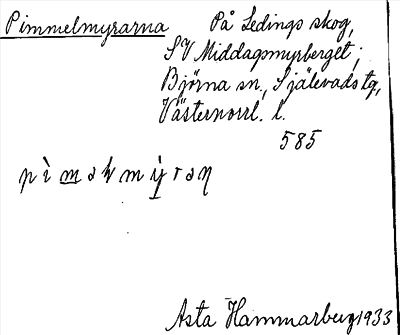 Pimmelmyrarna På Ledings skog,
SV Middagsmyrberget;
Björna sn., Själevads tg,
Västernorrl. l.
585
Asta Hammarberg 1933